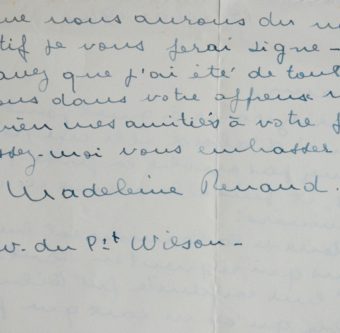 nous aurons du
tif je vous ferai signe -
que j'ai été de tout
dans votre affreux
mes amitiés à votre
ssez-moi vous embrasser
Madeleine Renaud.
v. du Pt Wilson -